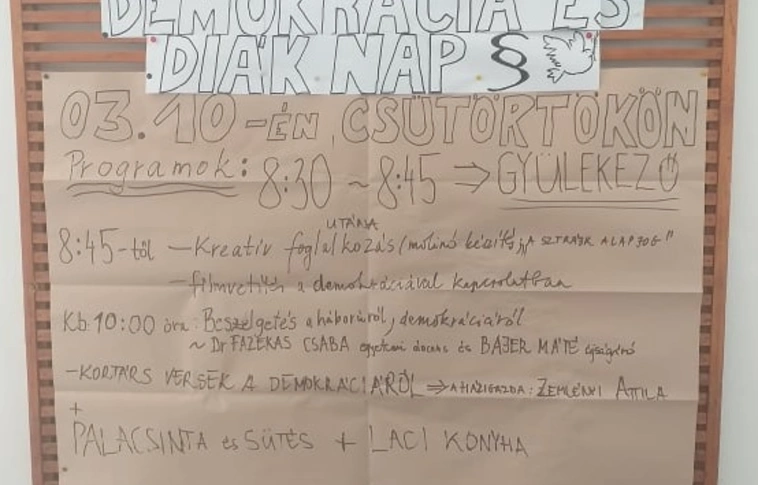 DEMOKRÁCIA ÉS
DIÁK NAP §
03.10-ÉN CSÜTÖRTÖKÖN
Programok: 8:30 ~ 8:45 ⇒ GYÜLEKEZŐ
UTÁNA
8:45-től — Kreatív foglalkozás (molinó készítés „A SZTRÁJK ALAPJOG"
— filmvetítés a demokráciával kapcsolatban
Kb. 10:00 óra: Beszélgetés a háborúról, demokráciáról
~ Dr FAZEKAS CSABA egyetemi docens és BAJER MÁTÉ újságíró
— KORTÁRS VERSEK A DEMOKRÁCIÁRÓL ⇒ A HÁZIGAZDA: ZEMLÉNYI ATTILA
+
PALACSINTA és SÜTÉS + LACI KONYHA